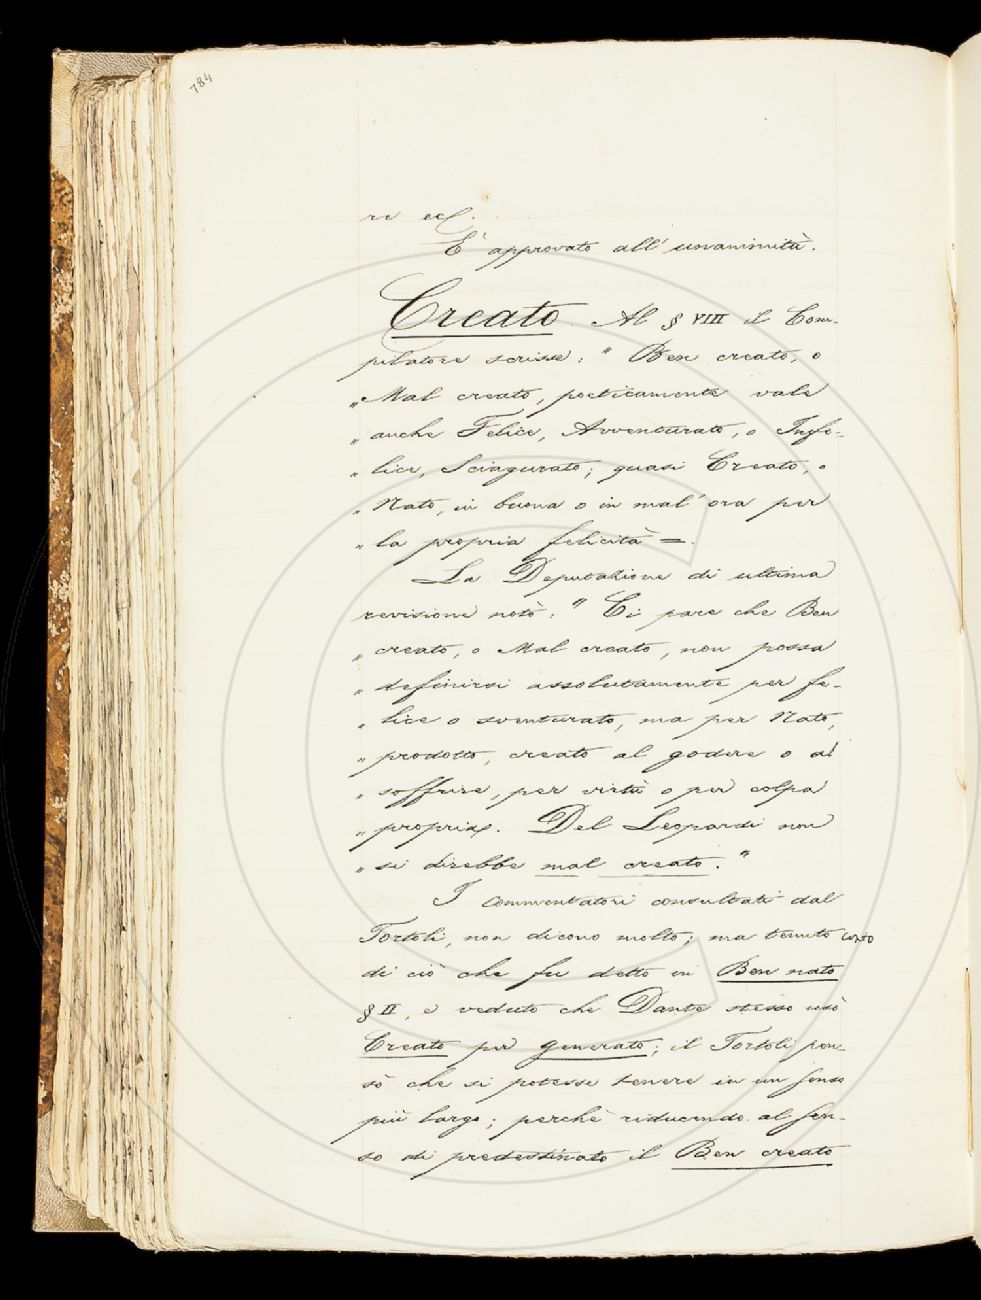 784
re ecc.
È approvato all'unanimità.
Creato. Al § VIII il Com-
pilatore scrisse: " Ben creato, o
" Mal creato, poeticamente vale
" anche Felice, Avventurato, o Infe-
" lice, Sciagurato; quasi Creato, o
" Nato, in buona o in mal'ora per
" la propria felicità =.
La Deputazione di ultima
revisione notò: " Ci pare che Ben
" creato, o Mal creato, non possa
" definirsi assolutamente per fe-
" lice o sventurato, ma per Nato,
" prodotto, creato al godere o al
" soffrire, per virtù o per colpa
" propria. Del Leopardi non
" si direbbe mal creato. "
I commentatori consultati dal
Tortoli, non dicono molto; ma tenuto conto
di ciò che fu detto in Ben nato
§ II, e veduto che Dante stesso usò
Creato per generato; il Tortoli pen-
sò che si potesse tenere in un senso
più largo; perchè riducendo al sen-
so di predestinato il Ben creato